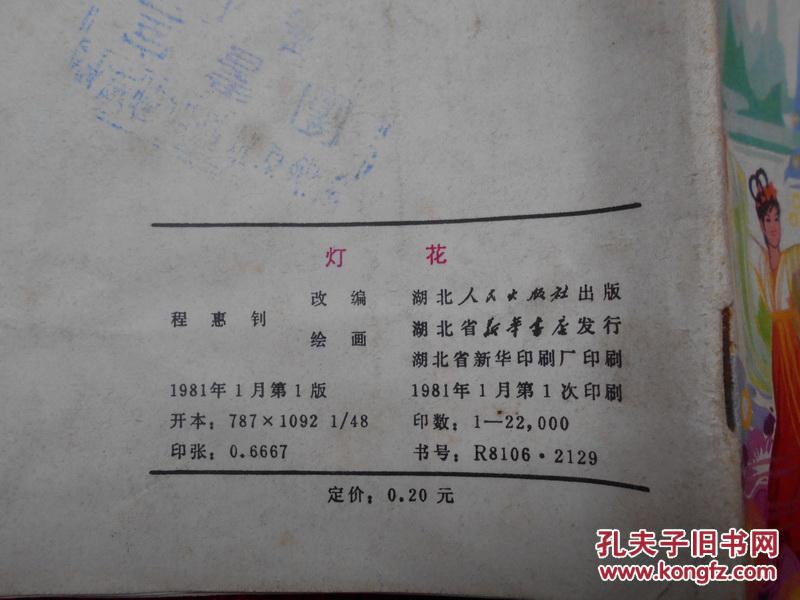 灯 花
程惠钊 改编 绘画
湖北人民出版社出版
湖北省新华书店发行
湖北省新华印刷厂印刷
1981年1月第1版 1981年1月第1次印刷
开本：787×1092 1/48 印数：1—22,000
印张：0.6667 书号：R8106·2129
定价：0.20 元
孔夫子旧书网
www.kongfz.com